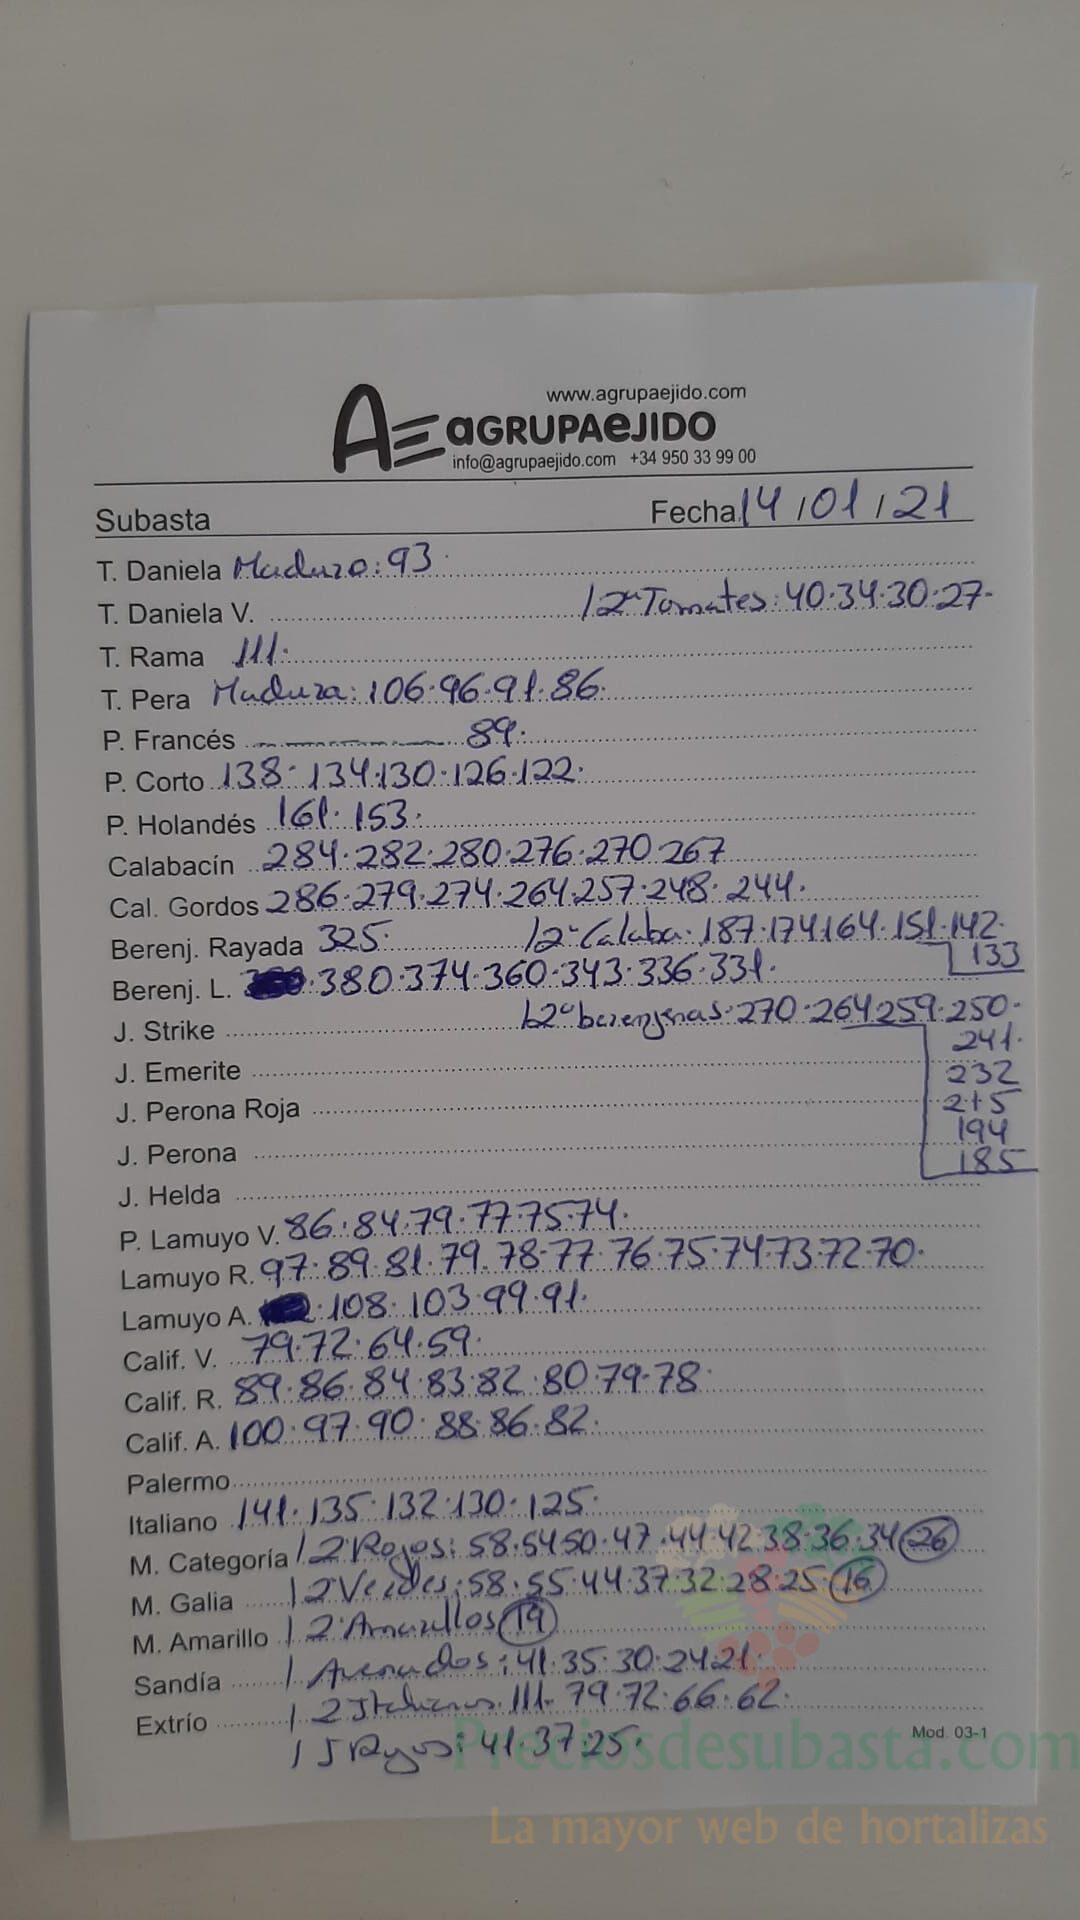 www.agrupaejido.com
AE aGRUPAeJIDO
info@agrupaejido.com +34 950 33 99 00
Subasta Fecha 14/01/21
T. Daniela Maduro: 93.
T. Daniela V. 2ª Tomates: 40.34.30.27.
T. Rama 111.
T. Pera Madura: 106.96.91.86.
P. Francés 89.
P. Corto 138.134.130.126.122.
P. Holandés 161.153.
Calabacín 284.282.280.276.270.267
Cal. Gordos 286.279.274.264.257.248.244.
Berenj. Rayada 325. 2ª Calaba. 187.174.164.151.142.
133
Berenj. L. 380.374.360.343.336.331.
J. Strike 2ª berenjenas.270.264.259.250.
241.
J. Emerite 232
J. Perona Roja 215
194
J. Perona 185
J. Helda
P. Lamuyo V. 86.84.79.77.75.74.
Lamuyo R. 97.89.81.79.78.77.76.75.74.73.72.70.
Lamuyo A. 108.103.99.91.
Calif. V. 79.72.64.59.
Calif. R. 89.86.84.83.82.80.79.78.
Calif. A. 100.97.90.88.86.82.
Palermo
Italiano 141.135.132.130.125.
M. Categoría 2ª Rojos: 58.54.50.47.44.42.38.36.34 26
M. Galia 2ª Verdes: 58.55.44.37.32.28.25. 16
M. Amarillo 2ª Amarillos 19
Sandía Asurados: 41.35.30.24.21.
Extrío 2 Italianos. 111.79.72.66.62.
Mod. 03-1
J Rojos: 41.37.25.
Preciosdesubasta.com
La mayor web de hortalizas